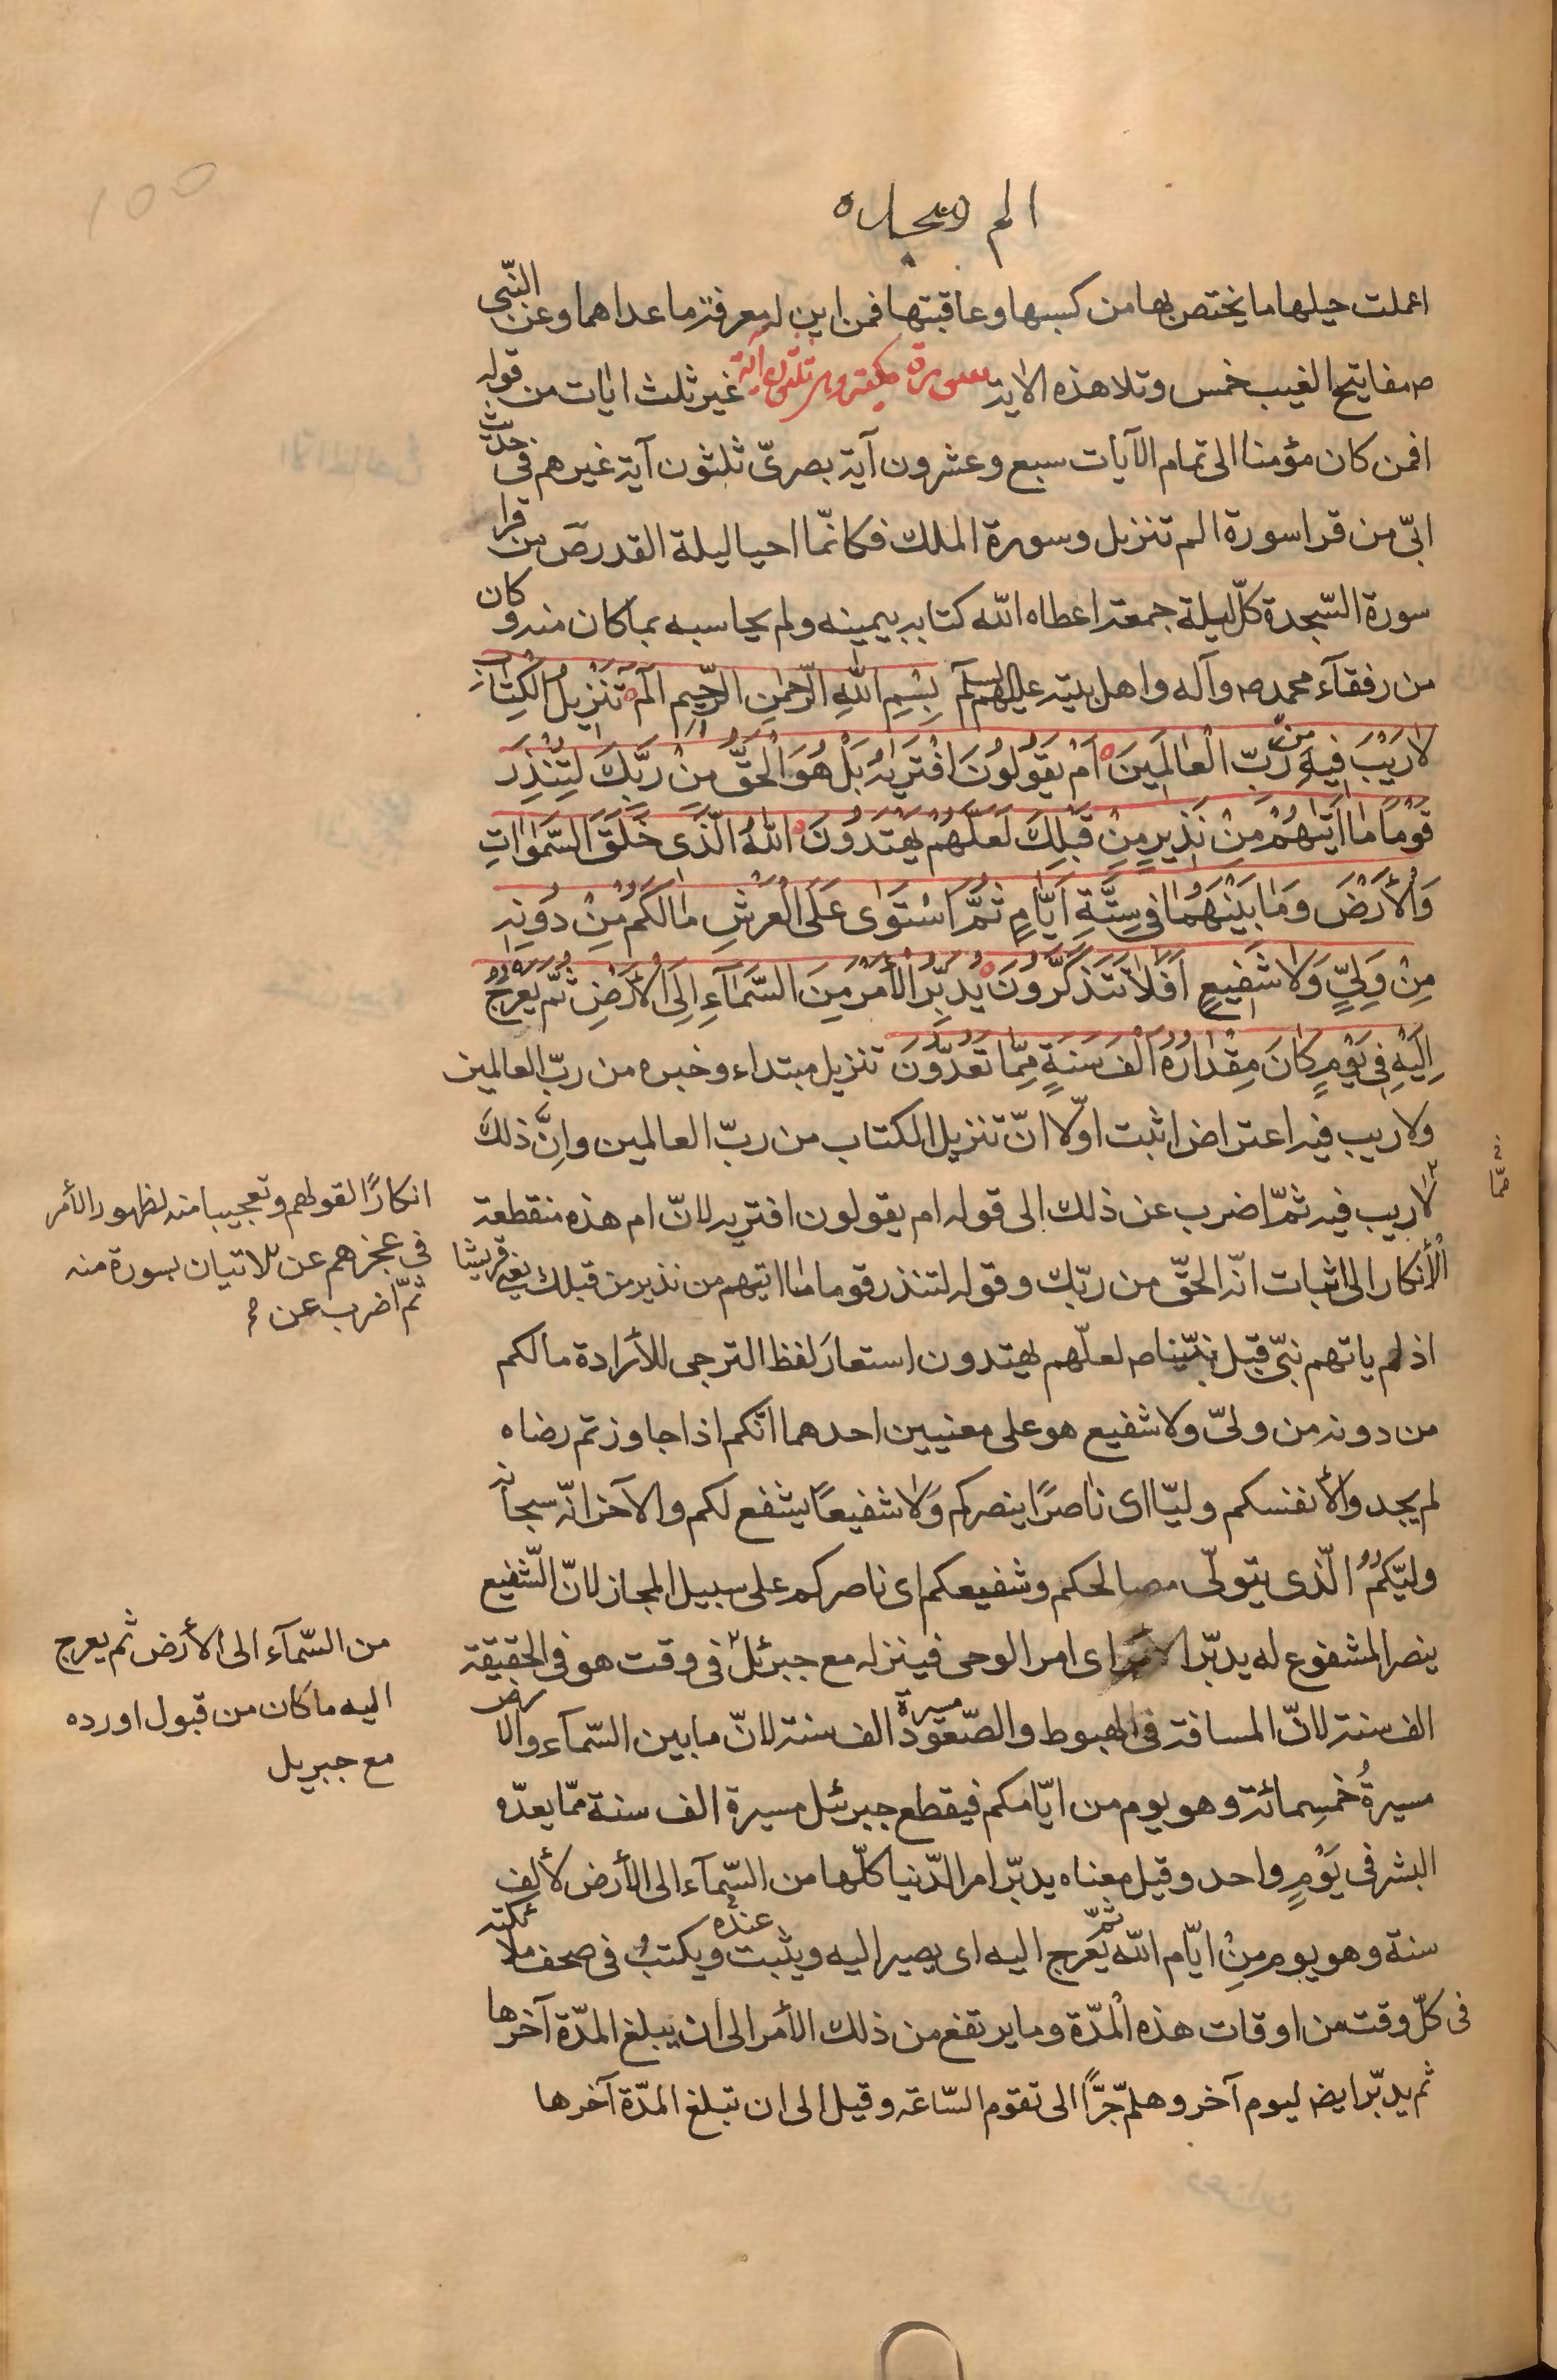 الم السجده
اعملت حيلها ما يختص بها من كسبها وعاقبتها فمن اين له معرفة ما عداهما وعن النّبي
ص مفاتيح الغيب خمس وتلا هذه الاية سورة مكية وهى ثلثون آية غير ثلث ايات من قوله
افمن كان مؤمنا الى تمام الآيات سبع وعشرون آية بصرىّ ثلثون آية غيرهم فى حديث
ابىّ من قرا سورة الم تنزيل وسورة الملك فكانّما احيا ليلة القدر صَ من قرا
سورة السّجدة كلّ ليلة جمعة اعطاه اللّه كتابه بيمينه ولم يحاسبه بما كان منه وكان
من رفقآء محمد ص وآله واهل بيته عليهم السلم بِسْمِ اللّهِ الرَّحْمٰنِ الرَّحِيمِ الٓمٓ تَنْزِيلُ الْكِتَابِ
لَا رَيْبَ فِيهِ مِنْ رَبِّ الْعَالَمِينَ اَمْ يَقُولُونَ افْتَرَيٰهُ بَلْ هُوَ الْحَقُّ مِنْ رَبِّكَ لِتُنْذِرَ
قَوْمًا مَا اَتٰيهُمْ مِنْ نَذِيرٍ مِنْ قَبْلِكَ لَعَلَّهُمْ يَهْتَدُونَ اَللّهُ الَّذِى خَلَقَ السَّمٰوَاتِ
وَالْأَرْضَ وَمَا بَيْنَهُمَا فِى سِتَّةِ اَيَّامٍ ثُمَّ اسْتَوَى عَلَى الْعَرْشِ مَا لَكُمْ مِنْ دُونِهِ
مِنْ وَلِىٍّ وَلَا شَفِيعٍ اَفَلَا تَتَذَكَّرُونَ يُدَبِّرُ الْأَمْرَ مِنَ السَّمَآءِ اِلَى الْأَرْضِ ثُمَّ يَعْرُجُ
اِلَيْهِ فِى يَوْمٍ كَانَ مِقْدَارُهُ اَلْفَ سَنَةٍ مِمَّا تَعُدُّونَ تنزيل مبتداء وخبره من ربّ العالمين
ولا ريب فيه اعتراض اثبت اوّلا انّ تنزيل الكتاب من ربّ العالمين وانّ ذلك
لا ريب فيه ثمّ اضرب عن ذلك الى قوله ام يقولون افتريه لانّ ام هذه منقطعة
انكارًا لقولهم وتعجيبا منه لظهور الأمر
فى عجزهم عن الاتيان بسورة منه
ثمّ اضرب عن
الأنكار الى اثبات انّه الحقّ من ربّك وقوله لتنذر قوما ما اتيهم من نذير من قبلك يعنى قريشا
اذ لم ياتهم نبىّ قبل نبيّنا ص لعلّهم يهتدون استعار لفظ الترجى للأرادة ما لكم
من دونه من ولىّ ولا شفيع هو على معنيين احدهما انّكم اذا جاوزتم رضاه
لم يجدوا لأنفسكم وليّا اى ناصرًا ينصركم ولا شفيعًا يشفع لكم والآخر انّه سبحانه
وليّكم الّذى يتولّى مصالحكم وشفيعكم اى ناصركم على سبيل المجاز لانّ الشّفيع
ينصر المشفوع له يدبّر الأمر اى امر الوحى فينزله مع جبرئل فى وقت هو فى الحقيقة
من السّمآء الى الأرض ثم يعرج
اليه ما كان من قبول او رده
مع جبريل
الف سنة لانّ المسافة فى الهبوط والصّعود مسيرة الف سنة لانّ ما بين السّمآء والارض
مسيرةُ خمسمائة وهو يوم من ايّامكم فيقطع جبرئل مسيرة الف سنة ممّا يعدّه
البشر فى يَوْمٍ واحد وقيل معناه يدبّر امر الدّنيا كلّها من السّمآء الى الأرض لألف
سنة وهو يوم مِنْ ايّام اللّه ثمّ يعرج اليه اى يصير اليه ويثبت عنده ويكتب فى صحف ملائكته
فى كلّ وقت من اوقات هذه المدّة وما يرتفع من ذلك الأمر الى ان يبلغ المدّة آخرها
ثم يدبّر ايض ليوم آخر وهلمّ جرًّا الى تقوم السّاعة وقيل الى ان تبلغ المدّة آخرها